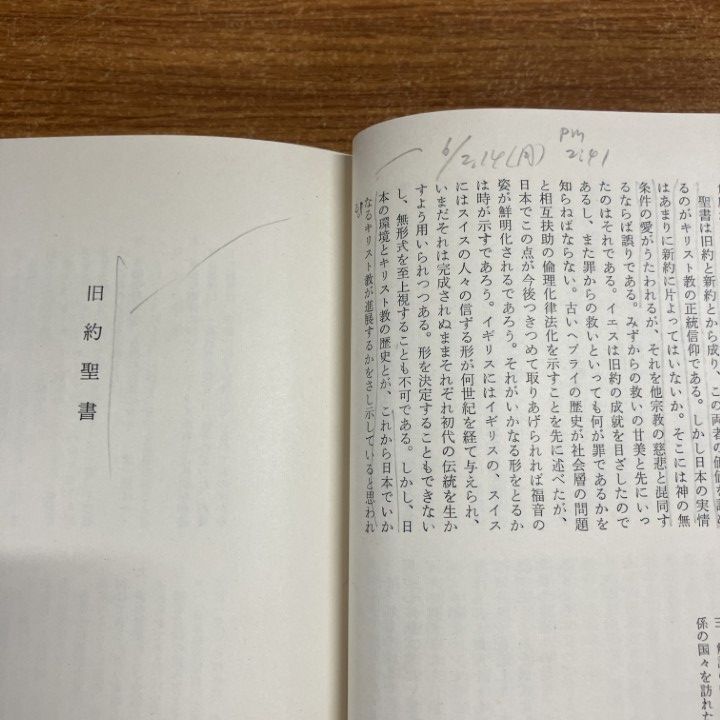 6/2.14(月) pm 2:41
聖書は旧約と新約とから成り、この両者の価値を認め
るのがキリスト教の正統信仰である。しかし日本の実情
はあまりに新約に片よってはいないか。そこには神の無
条件の愛がうたわれるが、それを他宗教の慈悲と混同す
るならば誤りである。みずからの救いの甘美と先にいっ
たのはそれである。イエスは旧約の成就を目ざしたので
あるし、また罪からの救いといっても何が罪であるかを
知らねばならない。古いヘブライの歴史が社会層の問題
と相互扶助の倫理化律法化を示すことを先に述べたが、
日本でこの点が今後つきつめて取りあげられれば福音の
姿が鮮明化されるであろう。それがいかなる形をとるか
は時が示すであろう。イギリスにはイギリスの、スイス
にはスイスの人々の信ずる形が何世紀を経て与えられ、
いまだそれは完成されぬままそれぞれ初代の伝統を生か
すよう用いられつつある。形を決定することもできない
し、無形式を至上視することも不可である。しかし、日
本の環境とキリスト教の歴史とが、これから日本でいか
なるキリスト教が進展するかをさし示していると思われ
係の国々を訪れた
旧約聖書